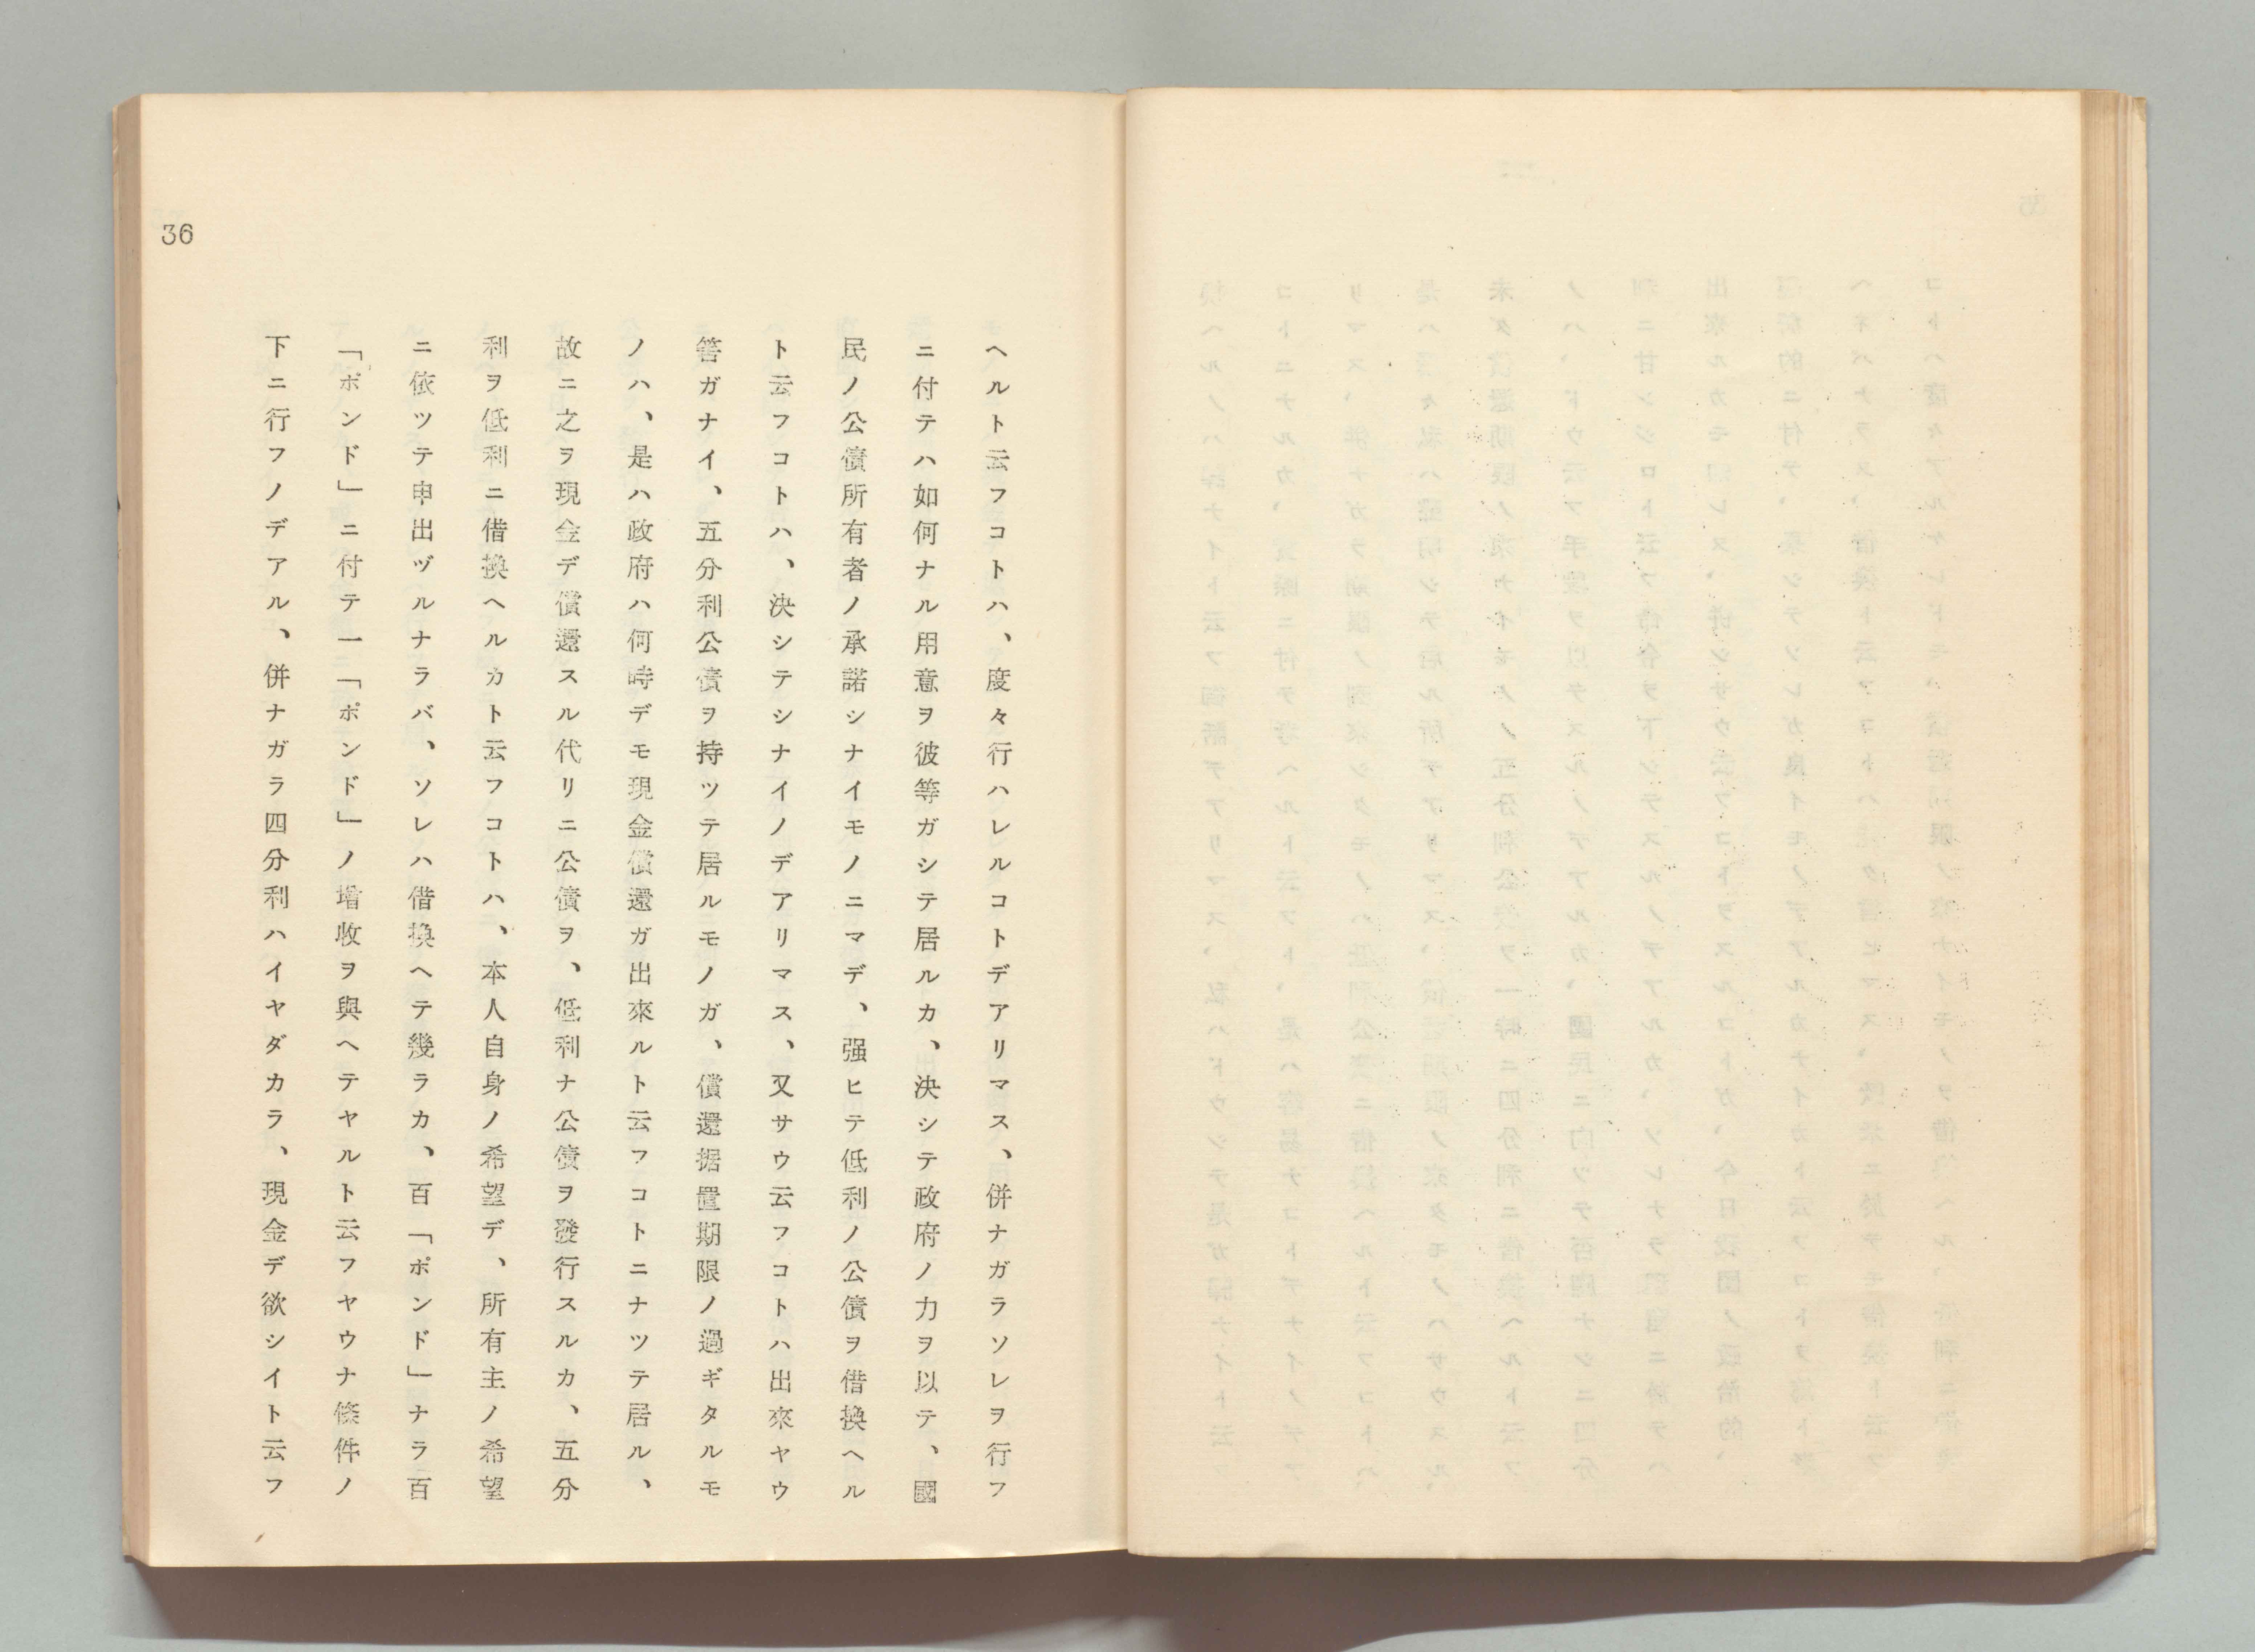 36
ヘルト云フコトハ、度々行ハレルコトデアリマス、併ナガラソレヲ行フ
ニ付テハ如何ナル用意ヲ彼等ガシテ居ルカ、決シテ政府ノ力ヲ以テ、國
民ノ公債所有者ノ承諾シナイモノニマデ、强ヒテ低利ノ公債ヲ借換ヘル
ト云フコトハ、決シテシナイノデアリマス、又サウ云フコトハ出來ヤウ
筈ガナイ、五分利公債ヲ持ツテ居ルモノガ、償還据置期限ノ過ギタルモ
ノハ、是ハ政府ハ何時デモ現金償還ガ出來ルト云フコトニナツテ居ル、
故ニ之ヲ現金デ償還スル代リニ公債ヲ、低利ナ公債ヲ發行スルカ、五分
利ヲ低利ニ借換ヘルカト云フコトハ、本人自身ノ希望デ、所有主ノ希望
ニ依ツテ申出ヅルナラバ、ソレハ借換ヘテ幾ラカ、百「ポンド」ナラ百
「ポンド」ニ付テ一「ポンド」ノ增收ヲ與ヘテヤルト云フヤウナ條件ノ
下ニ行フノデアル、併ナガラ四分利ハイヤダカラ、現金デ欲シイト云フ